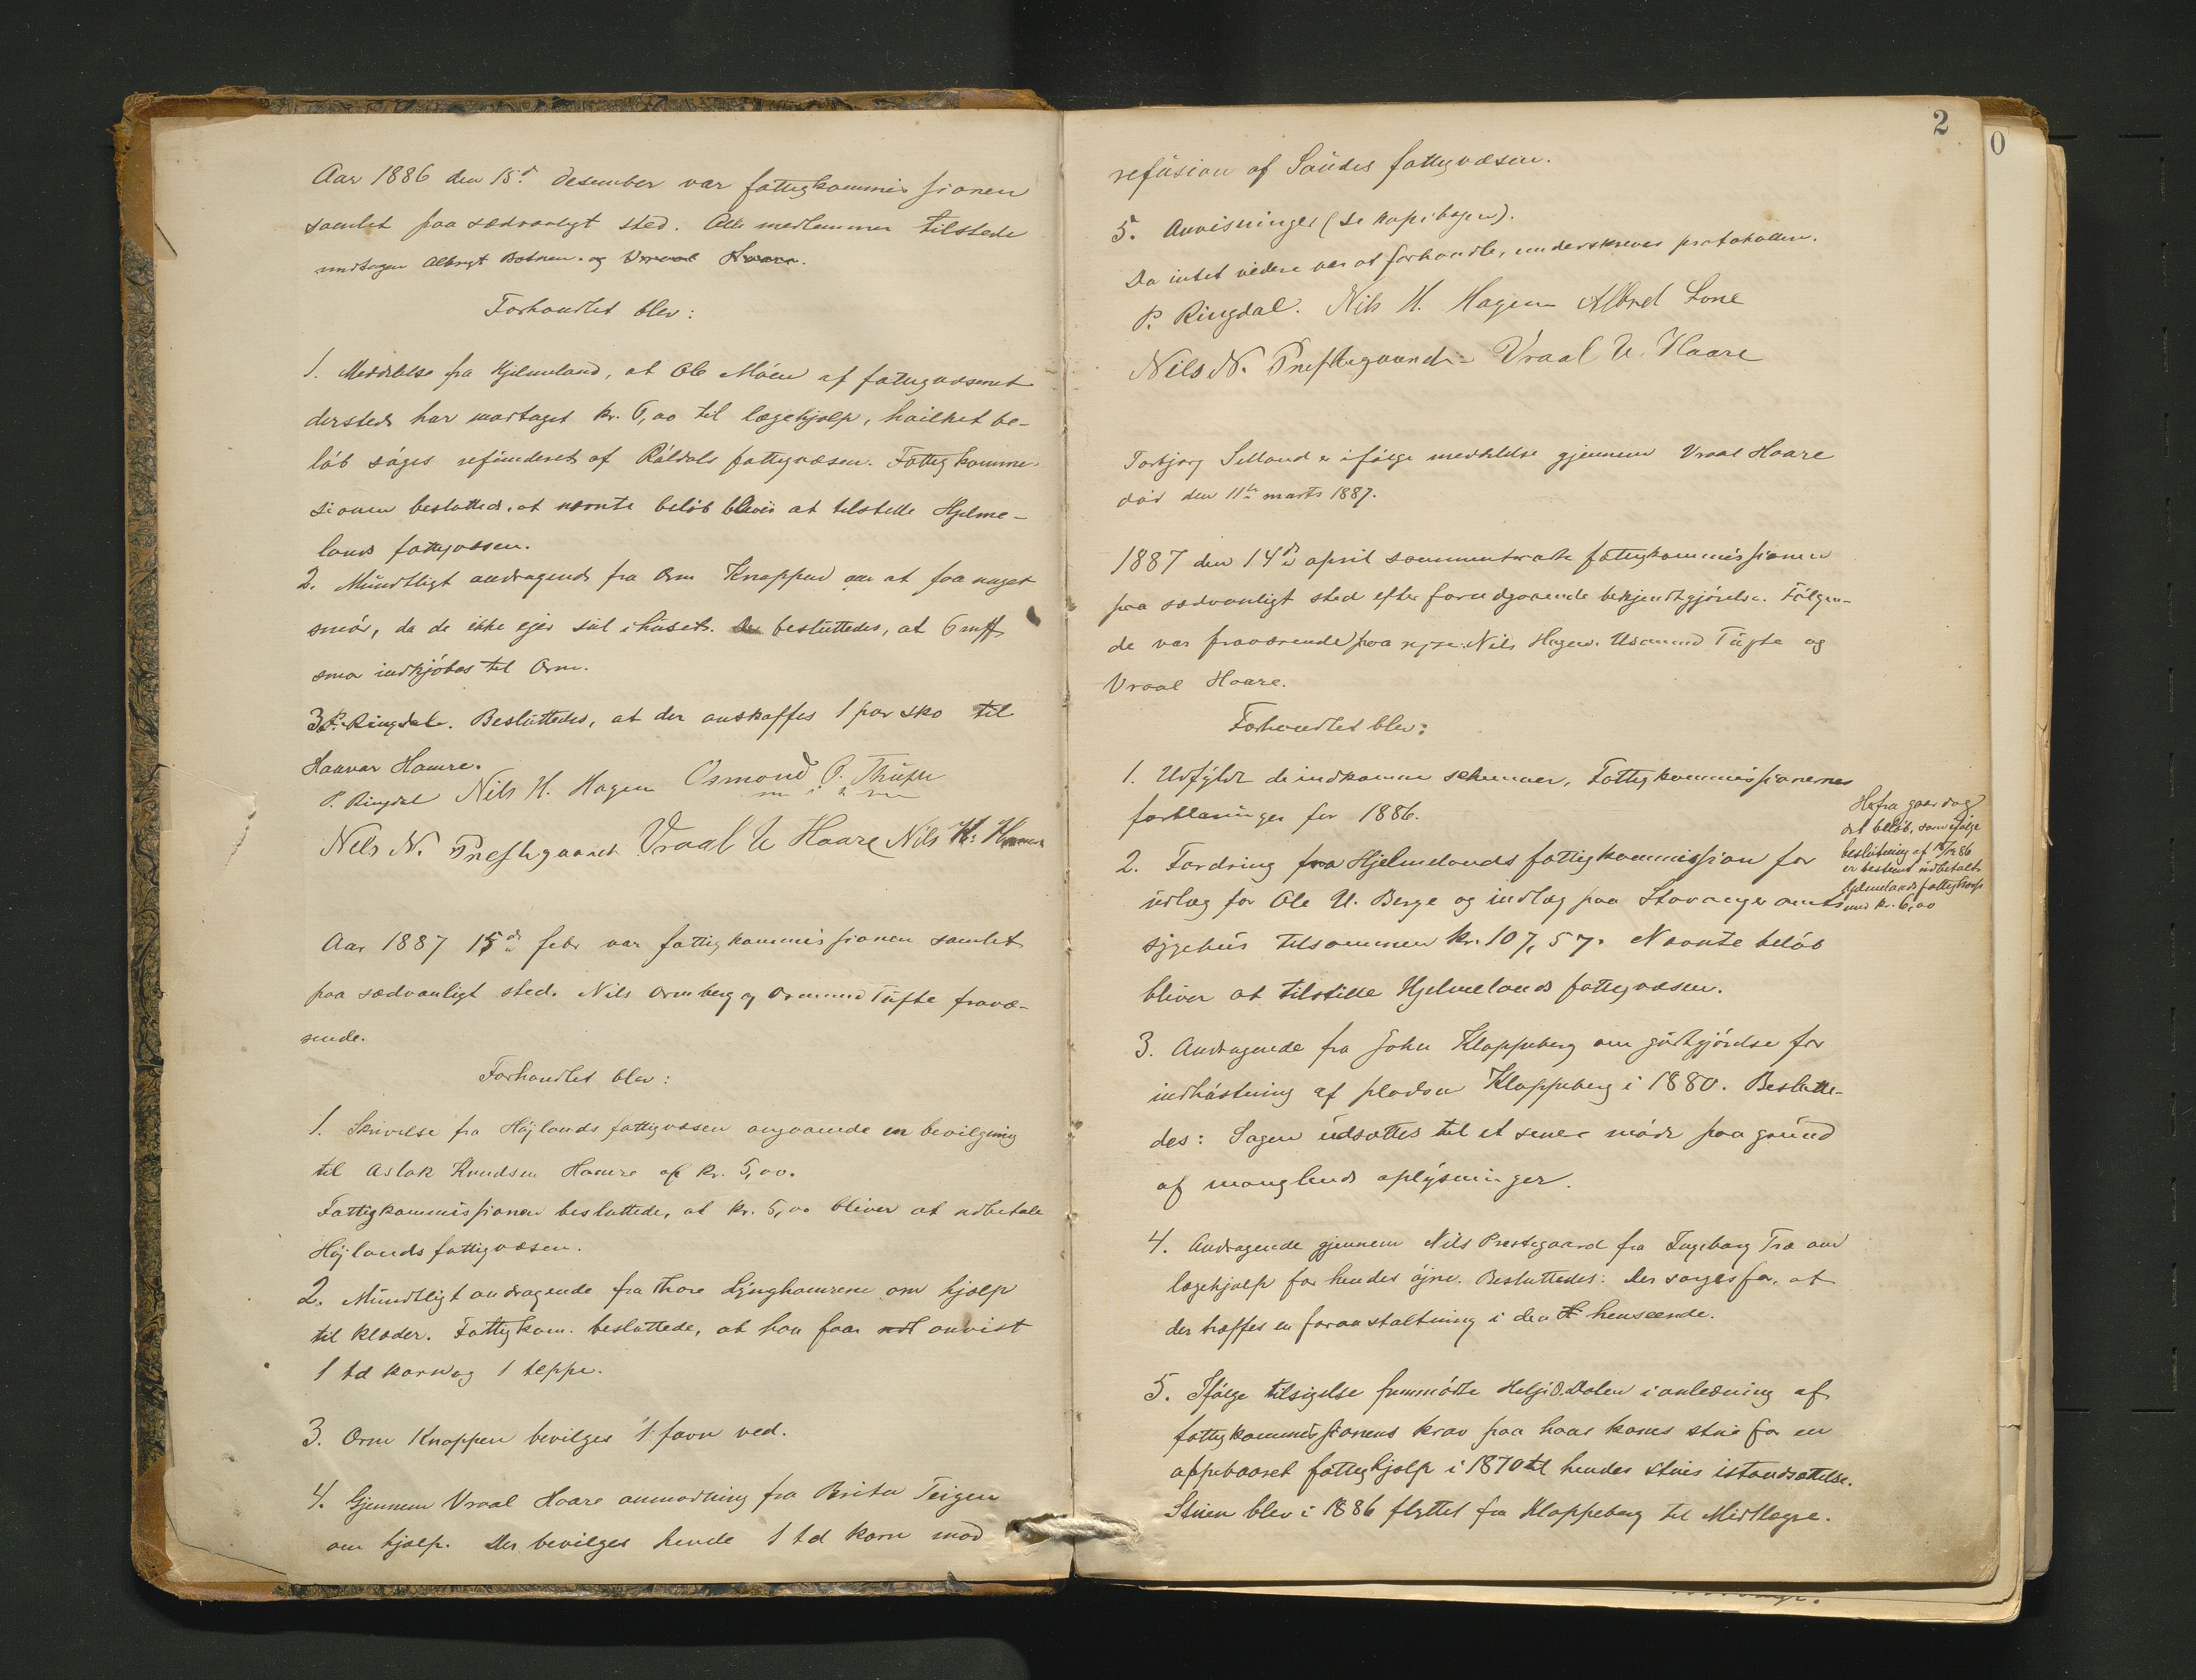 Aar 1886 den 15d desember var fattigkommissionen
samlet paa sædvanligt sted. Alle medlemmer tilstede
undtagen Albregt Botnen. og Vraal Haare.
Forhandlet blev:
1. Meddelelse fra Hjelmeland, at Ole Moen af fattigvæsenet
dersteds har modtaget kr. 6,00 til lægehjælp, hvilket be-
løb søges refunderet af Røldals fattigvæsen. Fattigkommis-
sionen besluttede, at nævnte beløb bliver at tilstelle Hjelme-
lands fattigvæsen.
2. Mundtligt andragende fra Orm Knappen om at faa noget
smør, da de ikke ejer sul i huset. Der besluttedes, at 6 mrk
smør indkjøbes til Orm.
3. P. Ringdal. Besluttedes, at der anskaffes 1 par sko til
Haavar Hamre.
P. Ringdal Nils H. Hagen Osmond P. Thufte
Nels N. Prestegaard Vraal U Haare Nils
Aar 1887 15de febr var fattigkommissionen samlet
paa sædvanligt sted. Nils Ormberg og Osmund Tufte fravæ-
rende.
Forhandlet blev:
1. Skrivelse fra Højlands fattigvæsen angaaende en bevilgning
til Aslak Knudsen Hamre af kr. 5,00.
Fattigkommissionen besluttede, at kr. 5,00 bliver at udbetale
Højlands fattigvæsen.
2. Mundtligt andragende fra Thore Lynghamrene om hjælp
til klæder. Fattigkom. besluttede, at han faar anvist
1 td korn og 1 teppe.
3. Orm Knappen bevilges 1 favn ved.
4. Gjennem Vraal Haare anmodning fra Brita Teigen
om hjælp. Der bevilges hende 1 td korn mod
2
0
refusion af Saudes fattigvæsen.
5. Anvisninger (se kopibogen).
Da intet videre var at forhandle, underskreves protokollen.
P. Ringdal. Nils H. Hagen Albred Lone
Nils N. Prestegaard Vraal U. Haare
Torbjørg Selland er ifølge meddelelse gjennem Vraal Haare
død den 11te marts 1887.
1887 den 14de april sammentraadte fattigkommissionen
paa sædvanligt sted efter forudgaaende bekjendtgjørelse. Følgen-
de var fraværende Nils Hagen. Osmund Tufte og
Vraal Haare.
Forhandlet blev:
1. Udfyldt de indkomne schemaer, Fattigkommissionernes
forklaringer for 1886.
2. Fordring fra Hjelmelands fattigkommission for
udlæg for Ole U. Berge og indlæg paa Stavanger amts
sygehus tilsammen kr. 107,57. Nævnte beløb
bliver at tilstille Hjelmelands fattigvæsen.
Herfra gaar dog
det beløb, som ifølge
beslutning af 15/12 86
er bestemt udbetalt
Hjelmelands fattigkasse
med kr. 6,00
3. Andragende fra John Klappeberg om godtgjørelse for
indhøstning af pladsen Klappeberg i 1880. Beslutte-
des: Sagen udsættes til et senere møde paa grund
af manglende oplysninger.
4. Andragende gjennem Nils Prestegaard fra Ingeborg Træ om
lægehjælp for hendes øjne. Besluttedes: Der sørges for, at
der træffes en foranstaltning i den henseende.
5. Ifølge tilsigelse fremmødte Helje D. Dalen i anledning af
fattigkommissionens krav paa hans kones stue for en
oppebaaret fattighjælp i 1870 til hendes stues istandsættelse.
Stuen blev i 1886 flyttet fra Klappeberg til Midtlægre.